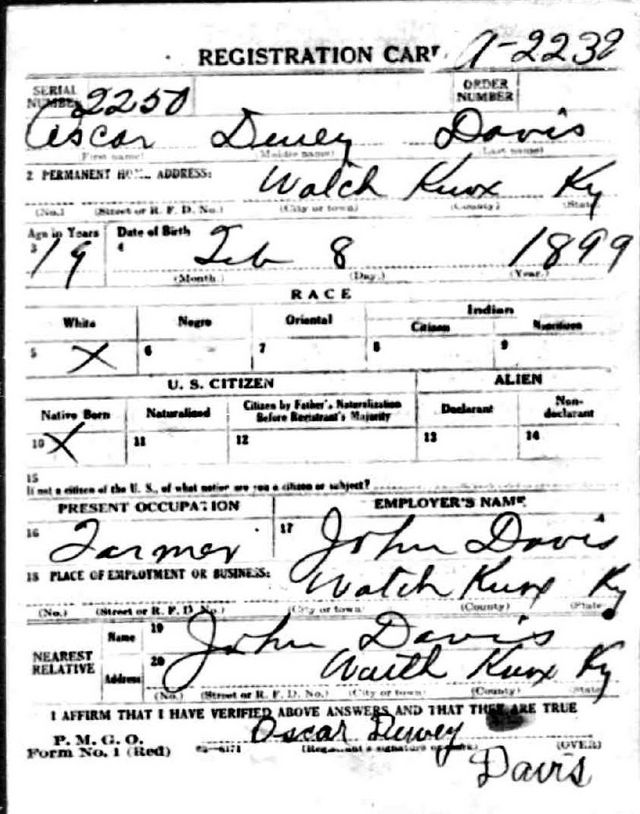 REGISTRATION CARD A-2232
SERIAL NUMBER 2250 ORDER NUMBER
Oscar Dewey Davis
(First name) (Middle name) (Last name)
2 PERMANENT HOME ADDRESS: Walch Knox Ky
(No.) (Street or R. F. D. No.) (City or town) (County) (State)
Age in Years Date of Birth
3 19 4 Feb 8 1899
(Month) (Day) (Year)
RACE
White Negro Oriental Indian
Citizen Noncitizen
5 X 6 7 8 9
U. S. CITIZEN ALIEN
Native Born Naturalized Citizen by Father's Naturalization Before Registrant's Majority Declarant Non-declarant
10 X 11 12 13 14
15
If not a citizen of the U. S., of what nation are you a citizen or subject?
PRESENT OCCUPATION EMPLOYER'S NAME
16 Farmer 17 John Davis
18 PLACE OF EMPLOYMENT OR BUSINESS: Watch Knox Ky
(No.) (Street or R. F. D. No.) (City or town) (County) (State)
NEAREST RELATIVE Name 19 John Davis
Address 20 Knox Ky
(No.) (Street or R. F. D. No.) (City or town) (County) (State)
I AFFIRM THAT I HAVE VERIFIED ABOVE ANSWERS AND THAT THEY ARE TRUE
P. M. G. O. Oscar Dewey
Form No. 1 (Red) (Registrant's signature or mark) (OVER)
Davis